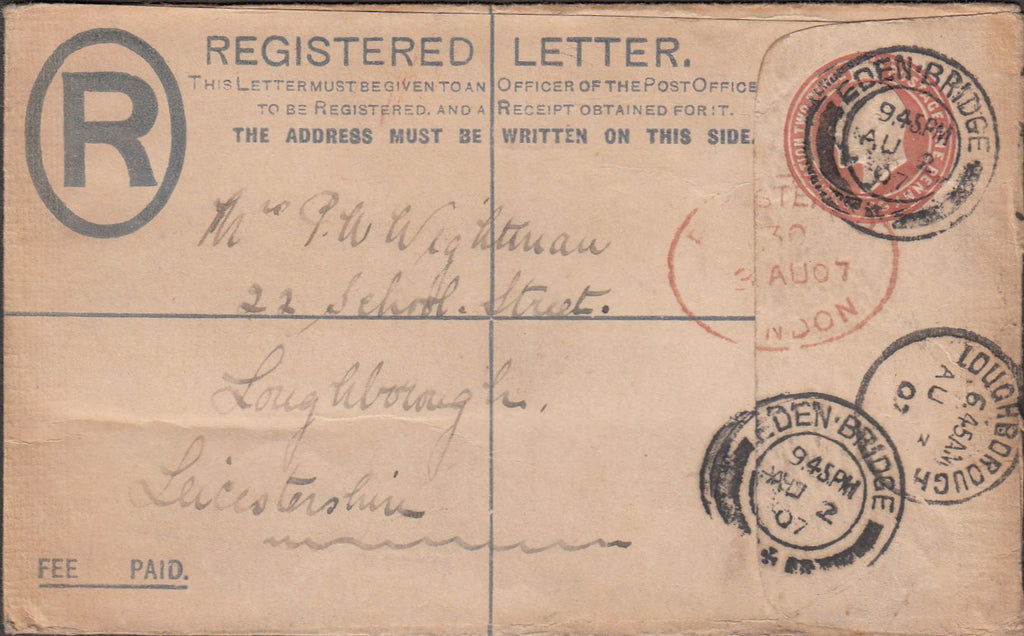 R
REGISTERED LETTER.
THIS LETTER MUST BE GIVEN TO AN OFFICER OF THE POST OFFICE
TO BE REGISTERED. AND A RECEIPT OBTAINED FOR IT.
THE ADDRESS MUST BE WRITTEN ON THIS SIDE.
EDEN·BRIDGE
9.45PM
AU 2
07
30
AU07
NDON
Wightman
22 School. Street.
Loughborough.
Leicestershire
LOUGHBOROUGH
6.45AM
AU
07
EDEN·BRIDGE
9.45PM
AU 2
07
FEE PAID.